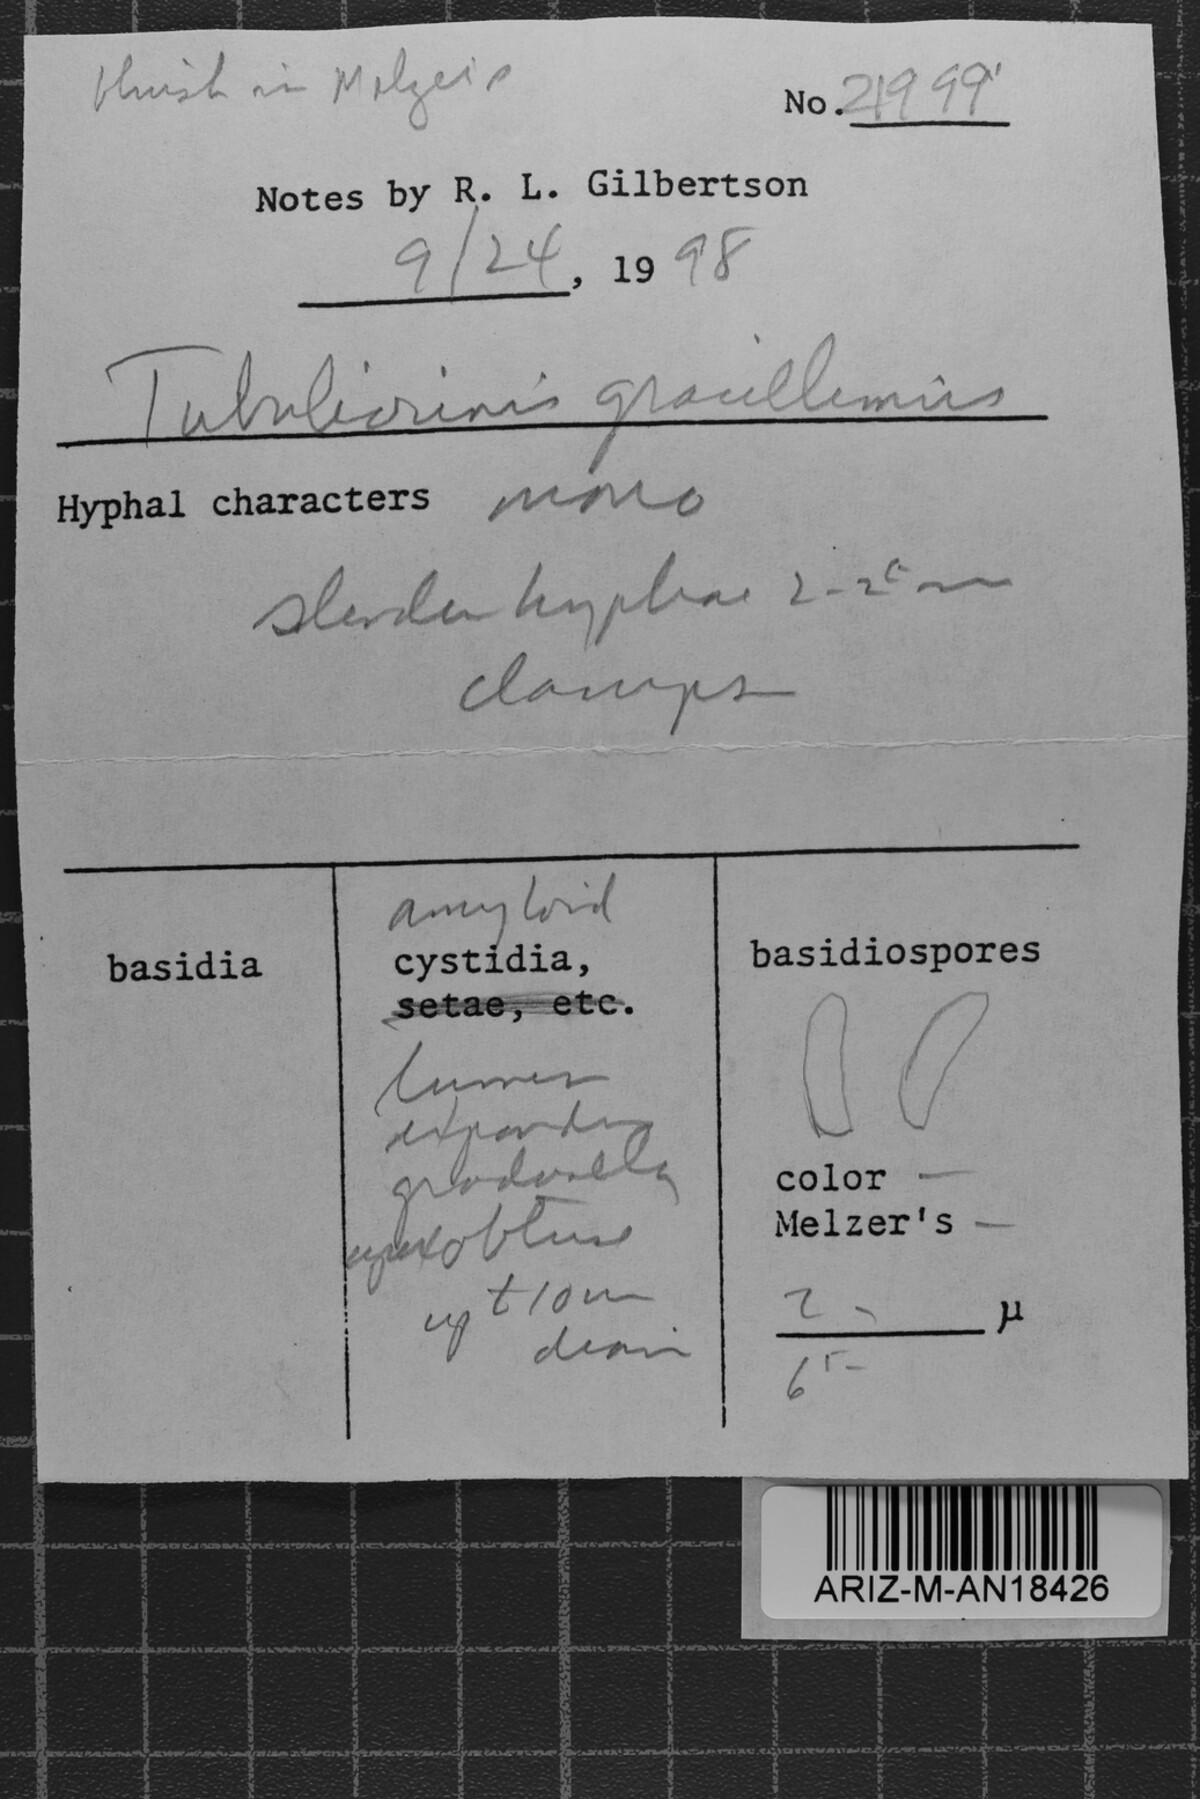 bluish in Melzer's
No. 21999
Notes by R. L. Gilbertson
9/24, 1998
Tubulicrinis gracillimus
Hyphal characters mono
slender hyphae 2-2⁵
clamps
amyloid
basidia
cystidia,
setae, etc.
lumen
expanding
gradually
apex obtuse
up t 10 um
diam
basidiospores
color —
Melzer's —
2 - µ
6⁵-
ARIZ-M-AN18426